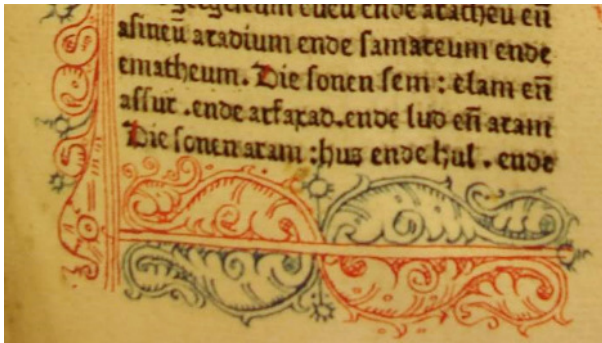 eueu ende aracheu en̄
asineū aradium ende samareum ende
ematheum. Die sonen sem : elam en̄
assur .ende arfaxad.ende lud en̄ aram
Die sonen aram :hus ende hul . ende